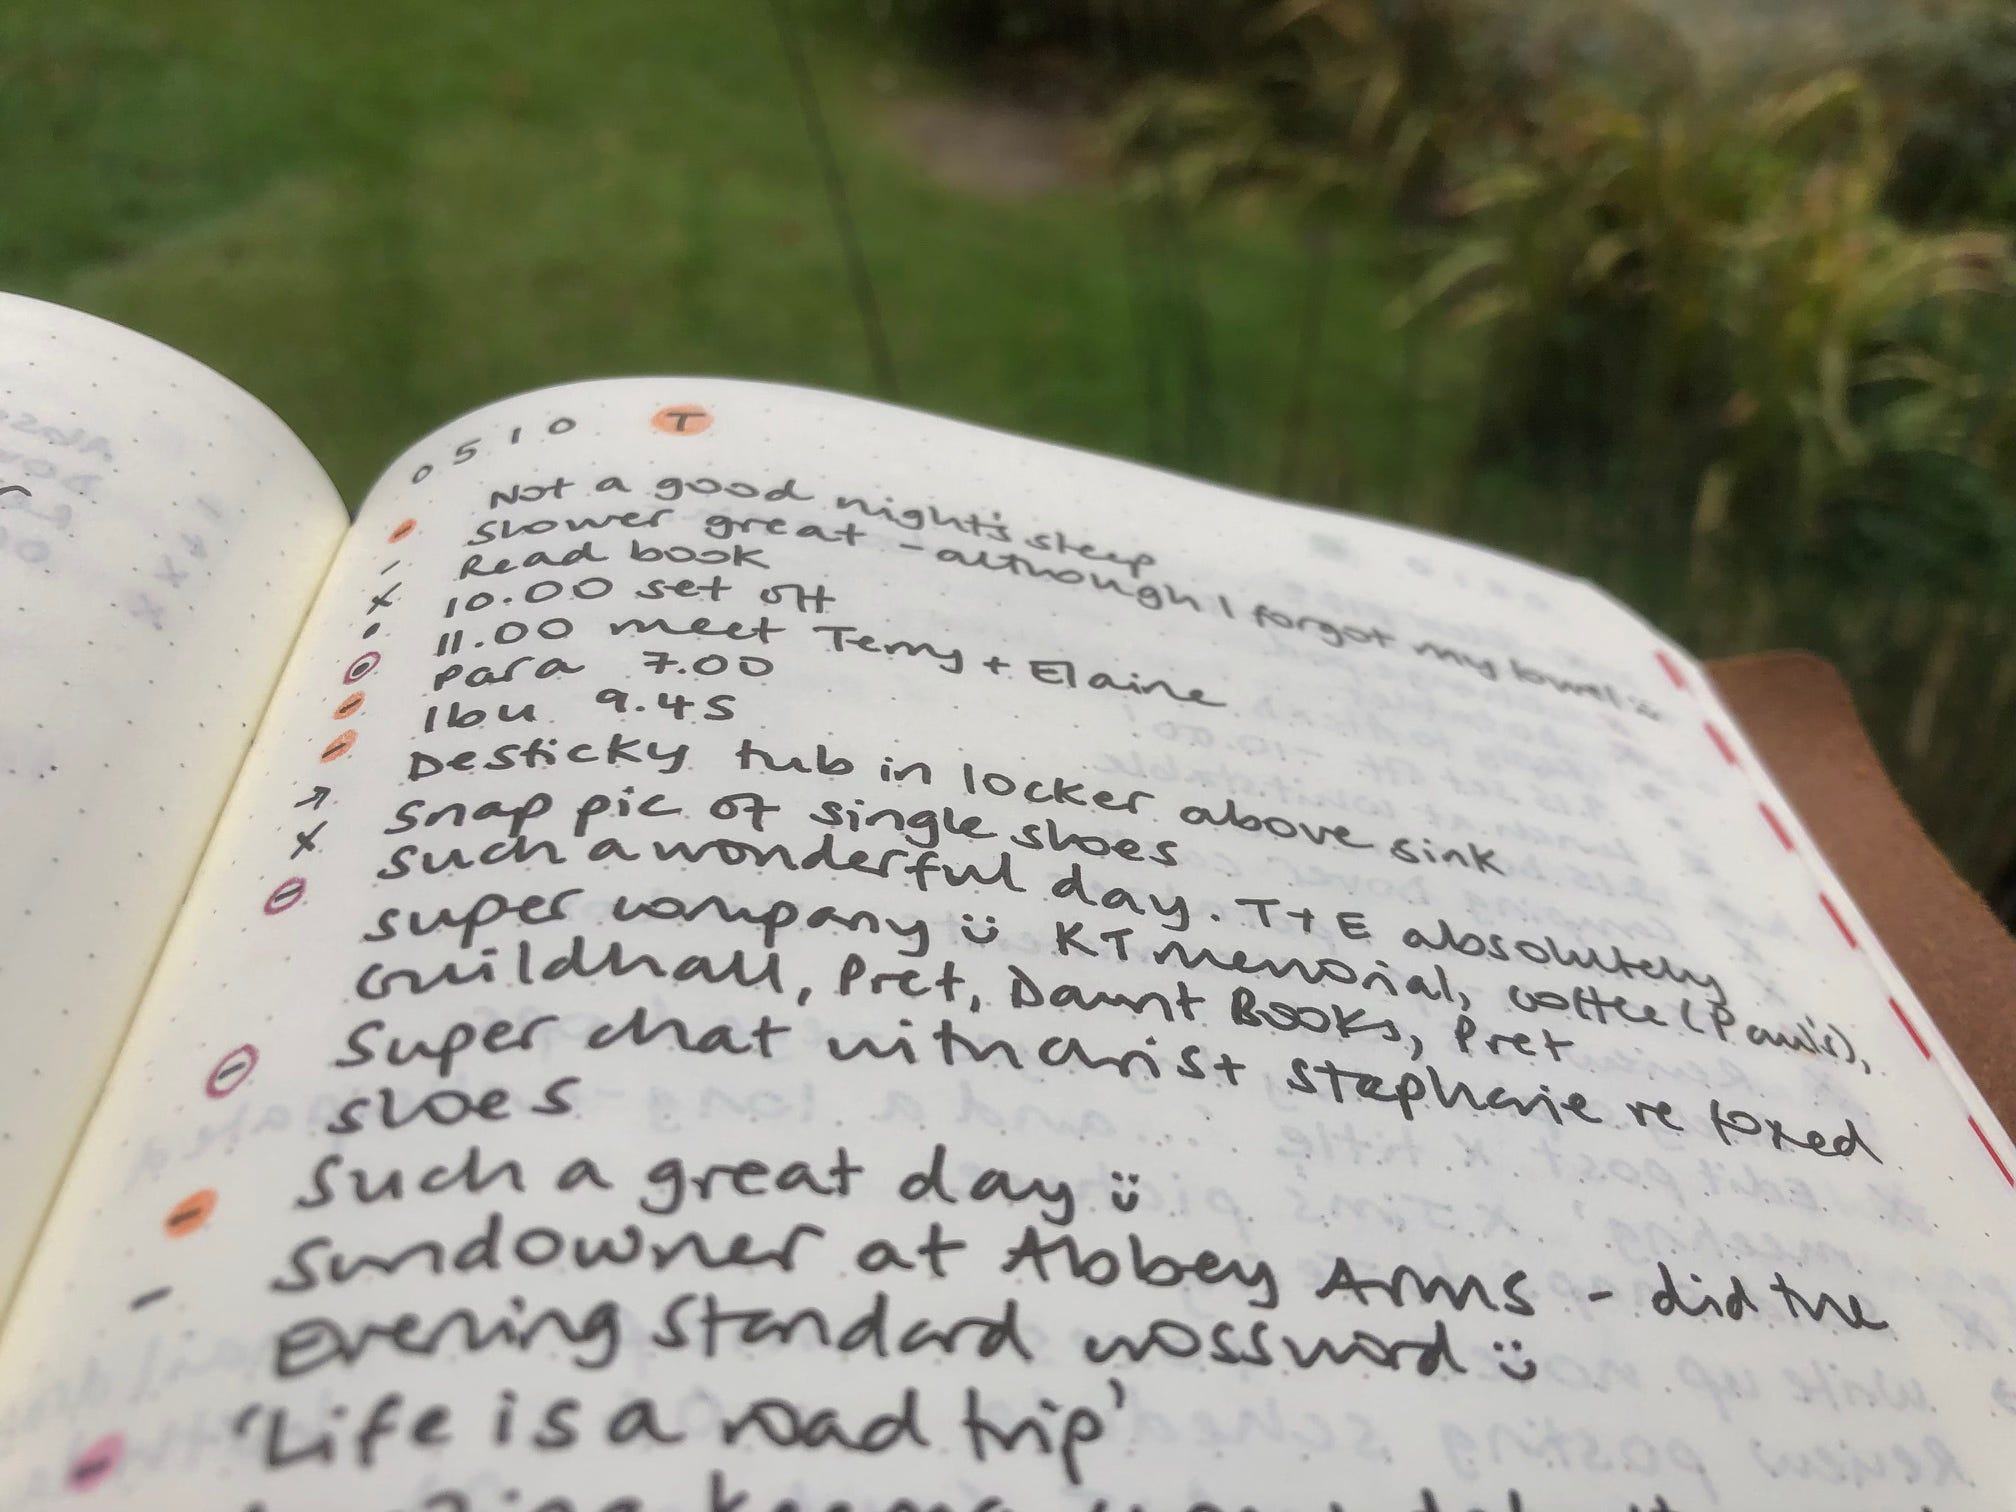 0510 T
Not a good night's sleep
Shower great - although I forgot my towel
Read book
10.00 set off
11.00 meet Terry + Elaine
Para 7.00
Ibu 9.45
Desticky tub in locker above sink
Snap pic of single shoes
Such a wonderful day. T+E absolutely
super company KT Memorial, coffee (Paul's),
Guildhall, Pret, Daunt Books, Pret
Super chat with artist Stephanie re foxed
shoes
Such a great day
Sundowner at Abbey Arms - did the
Evening Standard crossword
'Life is a road trip'